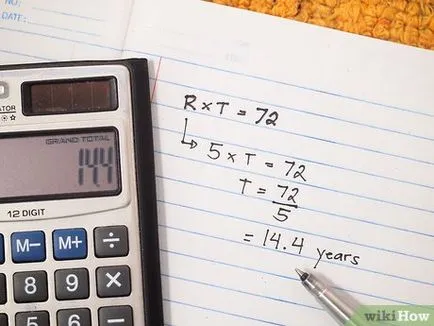 NO.:
DATE:
GRAND TOTAL
14.4
12 DIGIT
M– M+ ÷
8 9 ×
R x T = 72
5 x T = 72
T = 72
5
= 14.4 years
wikiHow